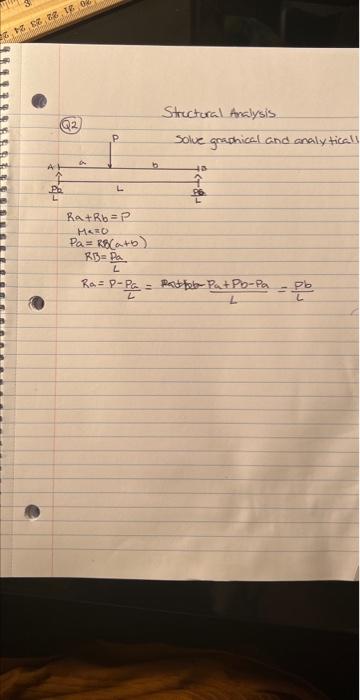 Structural Analysis
Q2
Solve graphical and analyticall
P
a b
A B
Pb/L L
Ra+Rb=P
Ma=0
Pa = RB(a+b)
RB= Pa/L
Ra = P-Pa/L = Pa+Pb-Pa/L = Pb/L